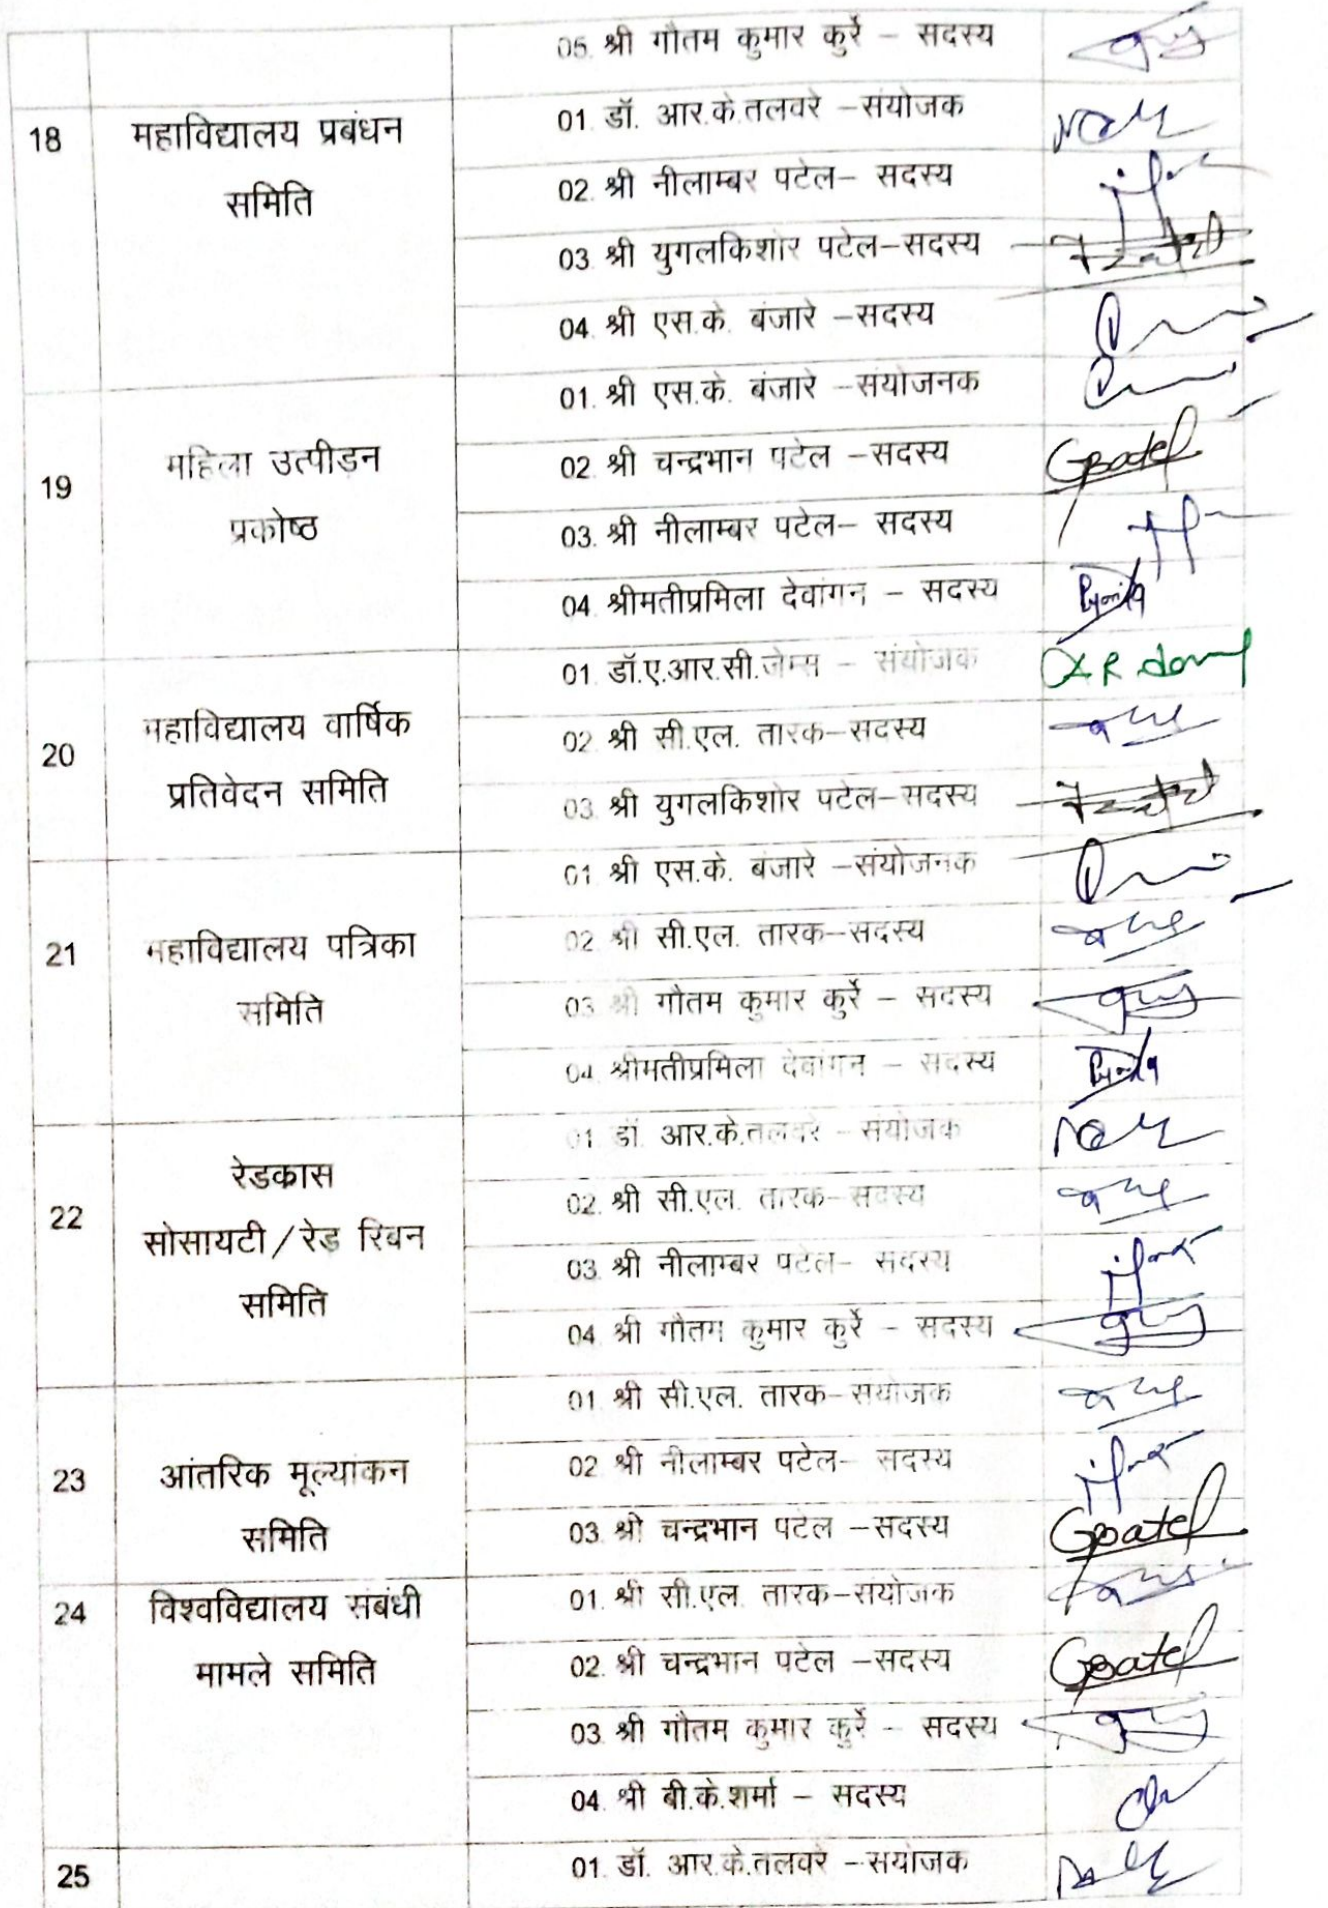 05. श्री गौतम कुमार कुर्रे – सदस्य
18
महाविद्यालय प्रबंधन
समिति
01. डॉ. आर.के.तलवरे –संयोजक
02. श्री नीलाम्बर पटेल– सदस्य
03. श्री युगलकिशोर पटेल–सदस्य
04. श्री एस.के. बंजारे –सदस्य
19
महिला उत्पीड़न
प्रकोष्ठ
01. श्री एस.के. बंजारे –संयोजनक
02. श्री चन्द्रभान पटेल –सदस्य
Gpatel
03. श्री नीलाम्बर पटेल– सदस्य
04. श्रीमतीप्रमिला देवांगन – सदस्य
20
महाविद्यालय वार्षिक
प्रतिवेदन समिति
01. डॉ.ए.आर.सी.जेम्स – संयोजक
02. श्री सी.एल. तारक–सदस्य
03. श्री युगलकिशोर पटेल–सदस्य
21
महाविद्यालय पत्रिका
समिति
01 श्री एस.के. बंजारे –संयोजनक
02. श्री सी.एल. तारक–सदस्य
03. श्री गौतम कुमार कुर्रे – सदस्य
04. श्रीमतीप्रमिला देवांगन – सदस्य
22
रेडकास
सोसायटी/रेड रिबन
समिति
01. डॉ. आर.के.तलवरे – संयोजक
02. श्री सी.एल. तारक–सदस्य
03. श्री नीलाम्बर पटेल– सदस्य
04. श्री गौतम कुमार कुर्रे – सदस्य
23
आंतरिक मूल्यांकन
समिति
01. श्री सी.एल. तारक–संयोजक
02 श्री नीलाम्बर पटेल– सदस्य
03. श्री चन्द्रभान पटेल –सदस्य
Gpatel
24
विश्वविद्यालय संबंधी
मामले समिति
01. श्री सी.एल. तारक–संयोजक
02. श्री चन्द्रभान पटेल –सदस्य
Gpatel
03. श्री गौतम कुमार कुर्रे – सदस्य
04. श्री बी.के.शर्मा – सदस्य
25
01. डॉ. आर.के.तलवरे –संयोजक